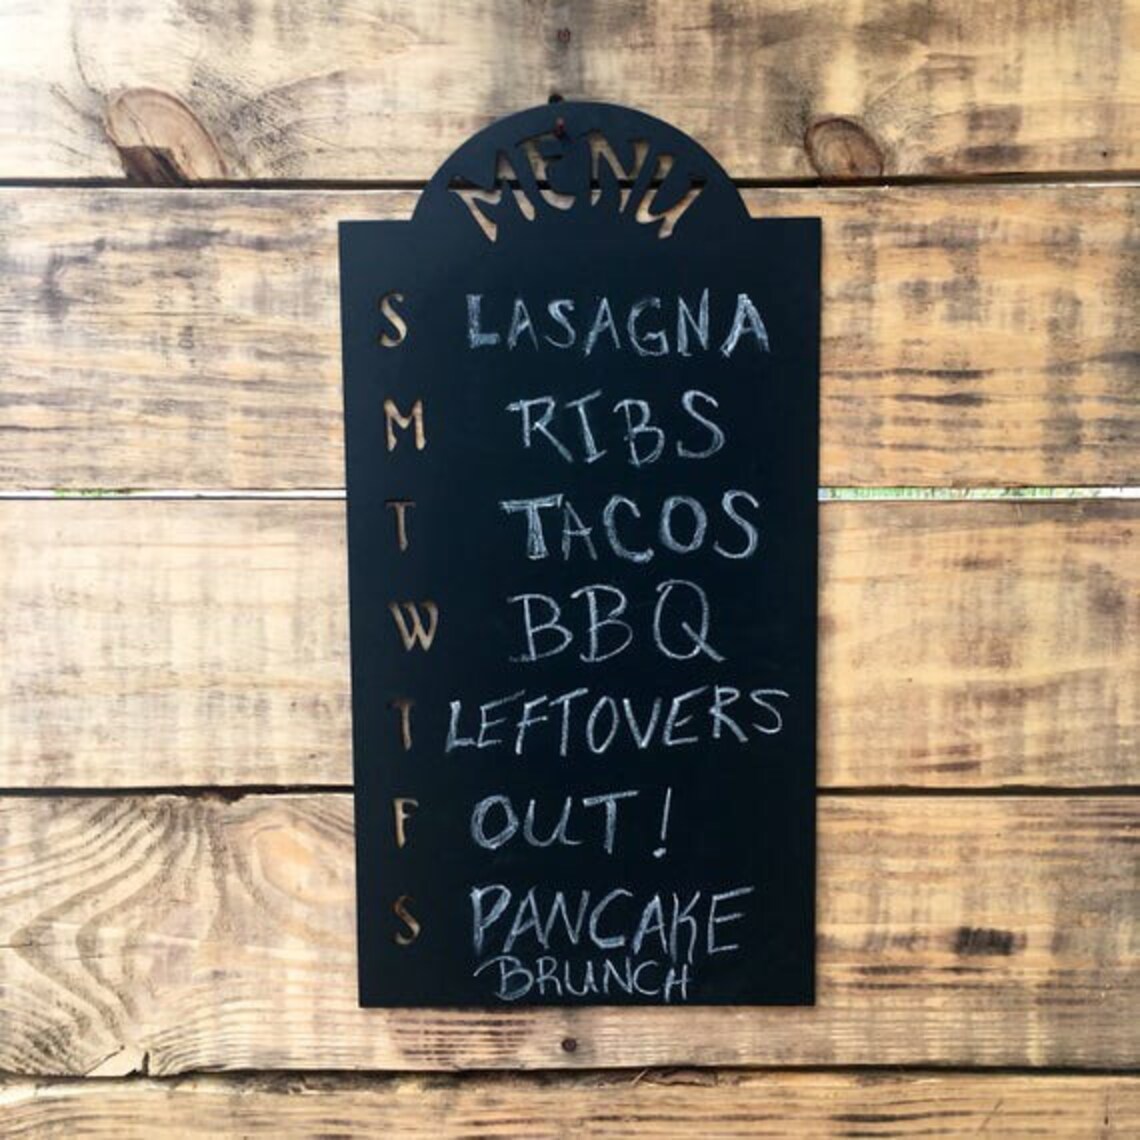 MENU
S LASAGNA
M RIBS
T TACOS
W BBQ
T LEFTOVERS
F OUT!
S PANCAKE
BRUNCH